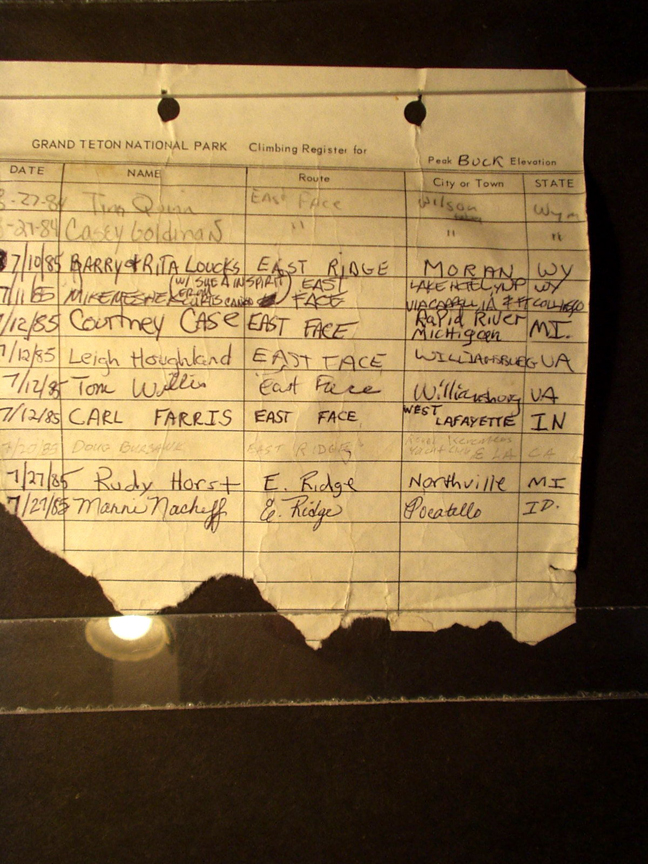 GRAND TETON NATIONAL PARK Climbing Register for
Peak BUCK Elevation
DATE NAME Route City or Town STATE
-27-84 Tim Quinn East Face Wilson Wyo
-27-84 Casey Goldman " " "
7/10/85 BARRY & RITA LOUCKS EAST RIDGE MORAN WY
7/11/85 MIKE (W/ SHEA IN SPIRIT EAST FACE LAKE HOTEL, YNP WY
7/12/85 Courtney Case EAST FACE Rapid River Michigan MI.
7/12/85 Leigh Houghland EAST FACE WILLIAMSBURG VA
7/12/85 Tom Willis East Face Williamsburg VA
7/12/85 CARL FARRIS EAST FACE WEST LAFAYETTE IN
7/20/85 DOUG EAST RIDGE LA CA
7/27/85 Rudy Horst E. Ridge Northville MI
7/27/85 E. Ridge Pocatello ID.